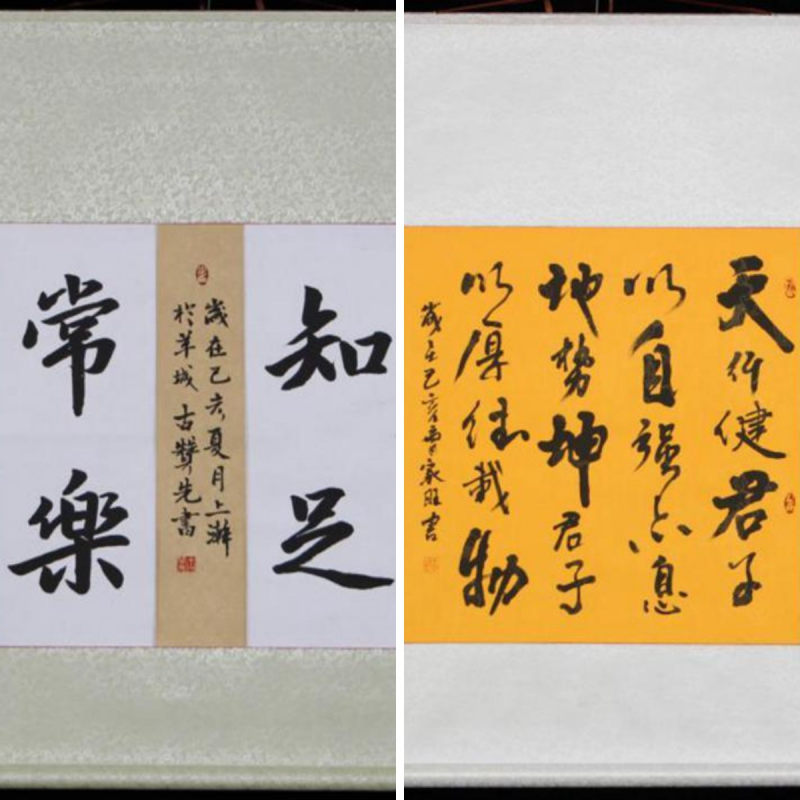 知足
歲在己亥夏月上澣
於羊城 古贊先書
常樂
天行健君子
以自强不息
地勢坤君子
以厚德載物
歲在己亥曹家旺書